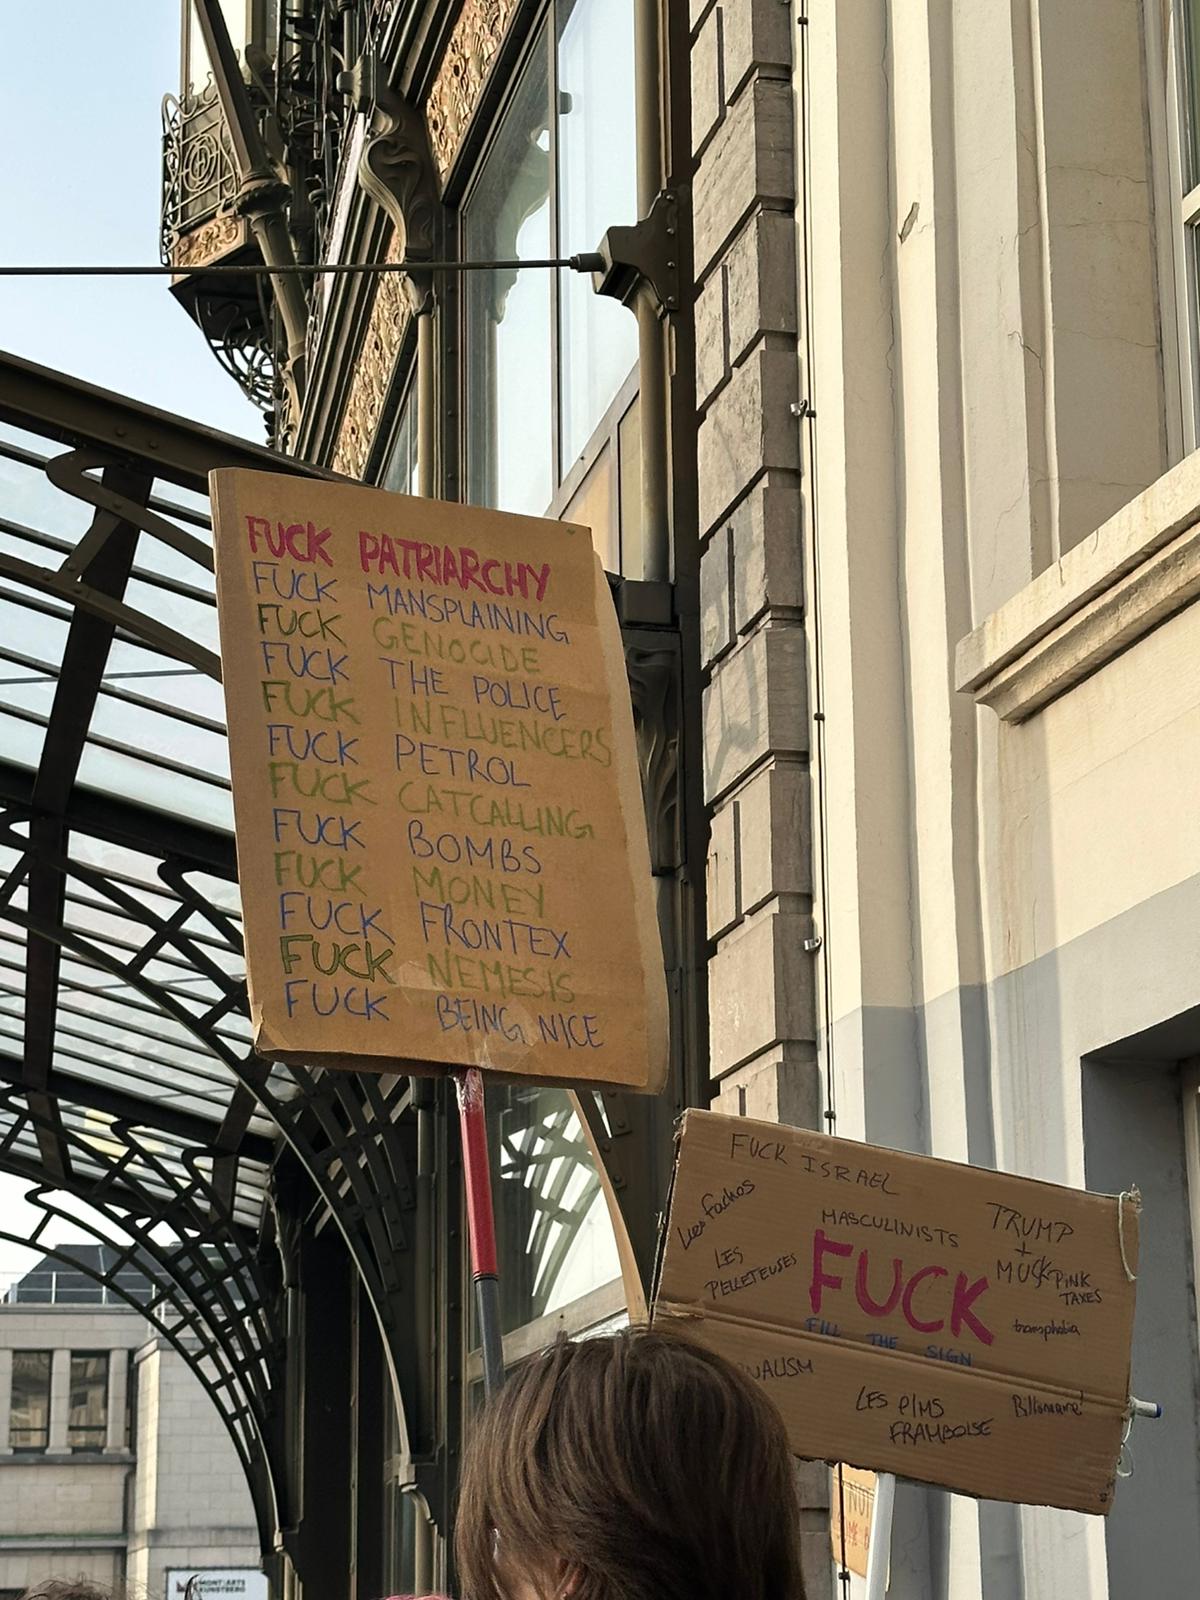 FUCK PATRIARCHY
FUCK MANSPLAINING
FUCK GENOCIDE
FUCK THE POLICE
FUCK INFLUENCERS
FUCK PETROL
FUCK CATCALLING
FUCK BOMBS
FUCK MONEY
FUCK FRONTEX
FUCK NEMESIS
FUCK BEING NICE
FUCK ISRAEL
Les fachos
MASCULINISTS
TRUMP
+
MUSK
LES
PELLETEUSES
FUCK
PINK
TAXES
FILL THE SIGN
transphobia
LES
FRAMBOISE
MONT ARTS
KUNSTBERG